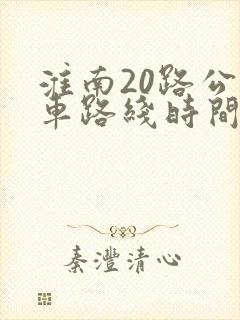 淮南20路公
車路綫時間
秦灃清心